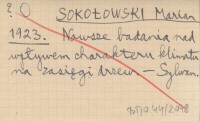 ? O SOKOŁOWSKI Marian
1923. Nowsze badania nad
wpływem charakteru klimatu
na zasięgi drzew. — Sylwan.